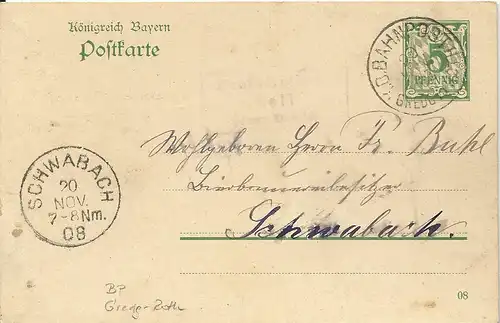 Königreich Bayern
Postkarte
K.B.BAHNPOST
GREDI
5
PFENNIG
Wohlgeboren Herrn Fr. Buhl
Bierbrauereibesitzer
Schwabach.
SCHWABACH
20
NOV.
7-8Nm.
08
BP
Greding-Roth
08